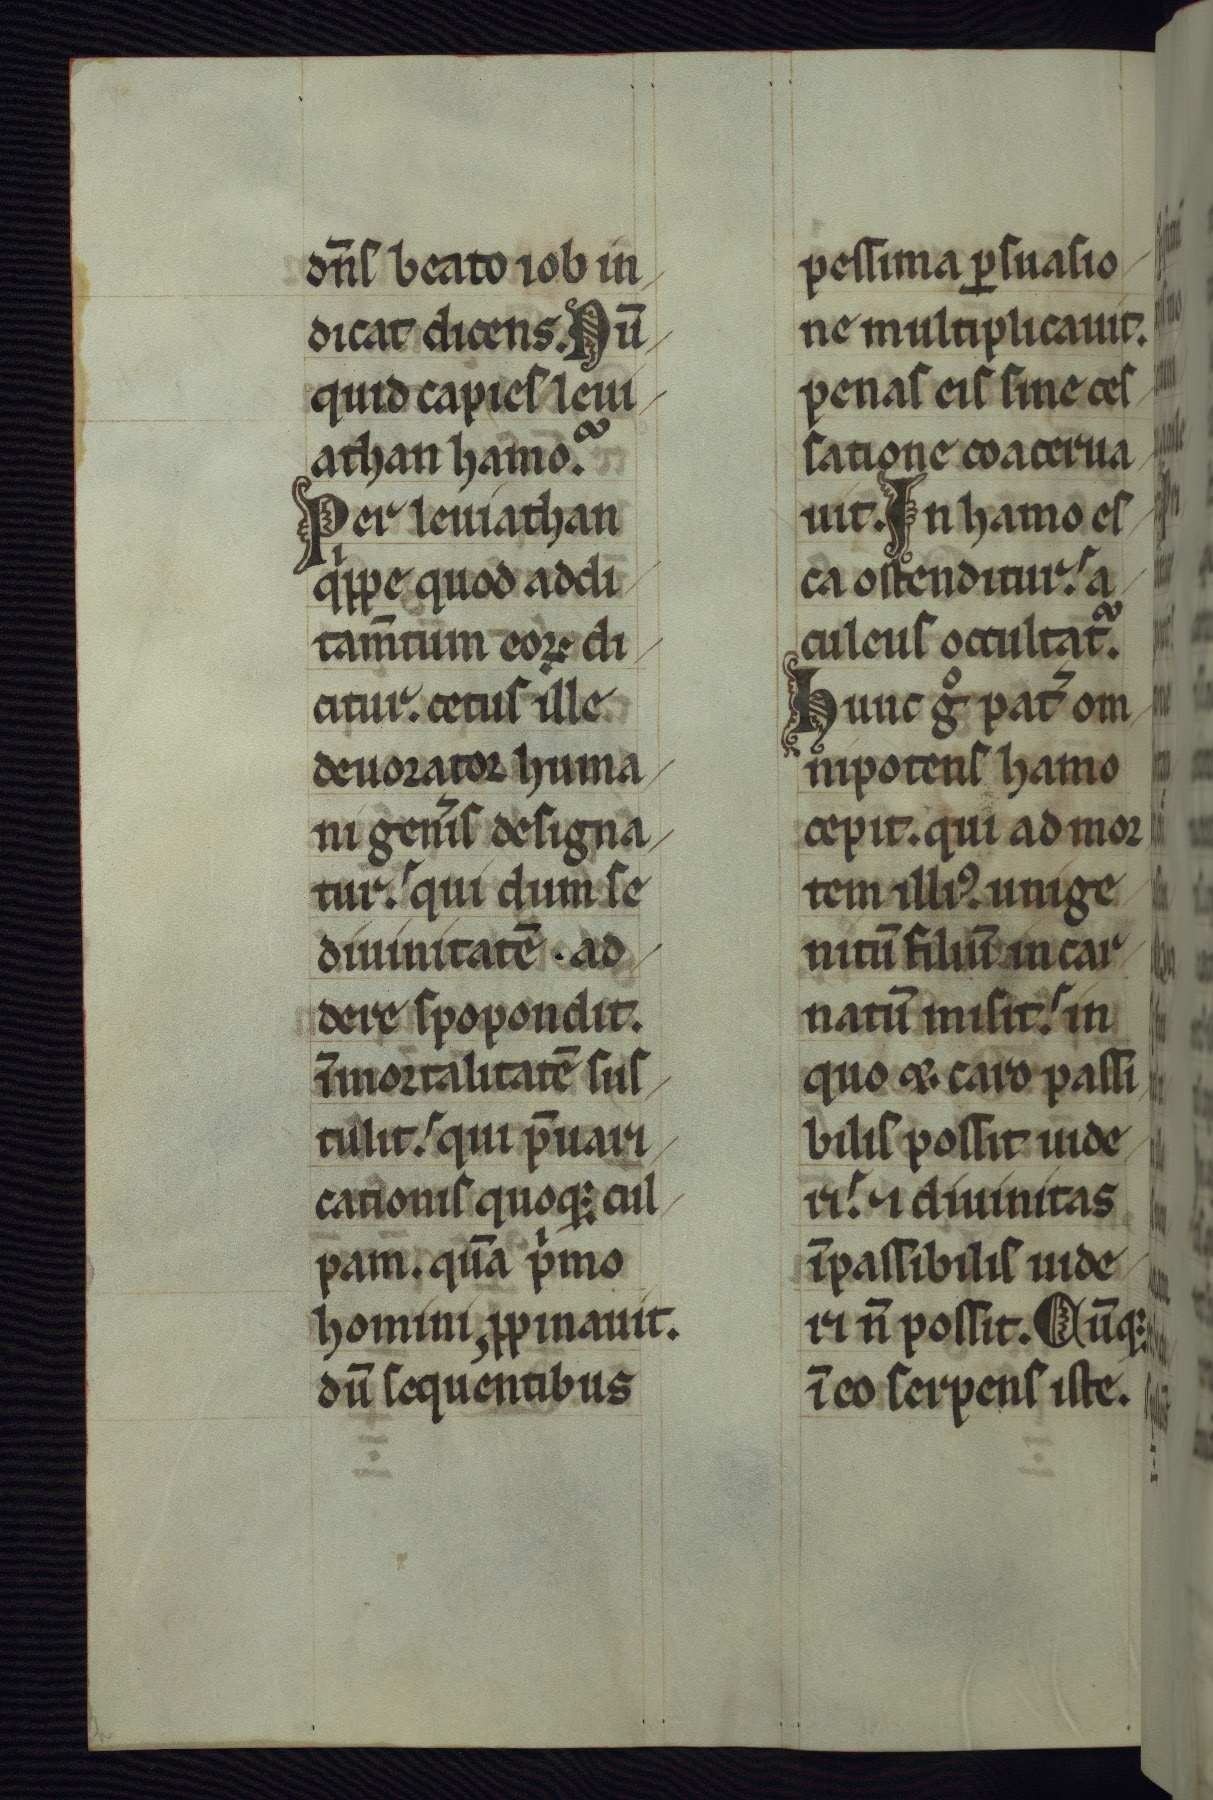 dn̄s beato iob in
dicat dicens. Nū
quid capies leui
athan hamo.
Per leuiathan
qͥppe quod addi
tam̄tum eoꝝ di
citur. cetus ille
deuorator huma
ni gen̾is designa
tur. qui dum se
diuinitatē . ad
dere spopondit.
īmortalitatē sus
tulit. qui p̄uari
cationis quoqꝫ cul
pam. quā pͥmo
homini ꝓpinauit.
dū sequentibus
pessima ꝑsuasio
ne multiplicauit.
penas eis sine ces
satione coacerua
uit. In hamo es
ca ostenditur. a
culeus occultat̄.
Hunc gͦ pat̾ om
nipotens hamo
cepit. qui ad mor
tem illiꝰ. unige
nitū filiū incar
natū misit. in
quo & caro passi
bilis possit uide
ri. & diuinitas
īpassibilis uide
ri n̄ possit. Cūqꝫ
ī eo serpens iste.